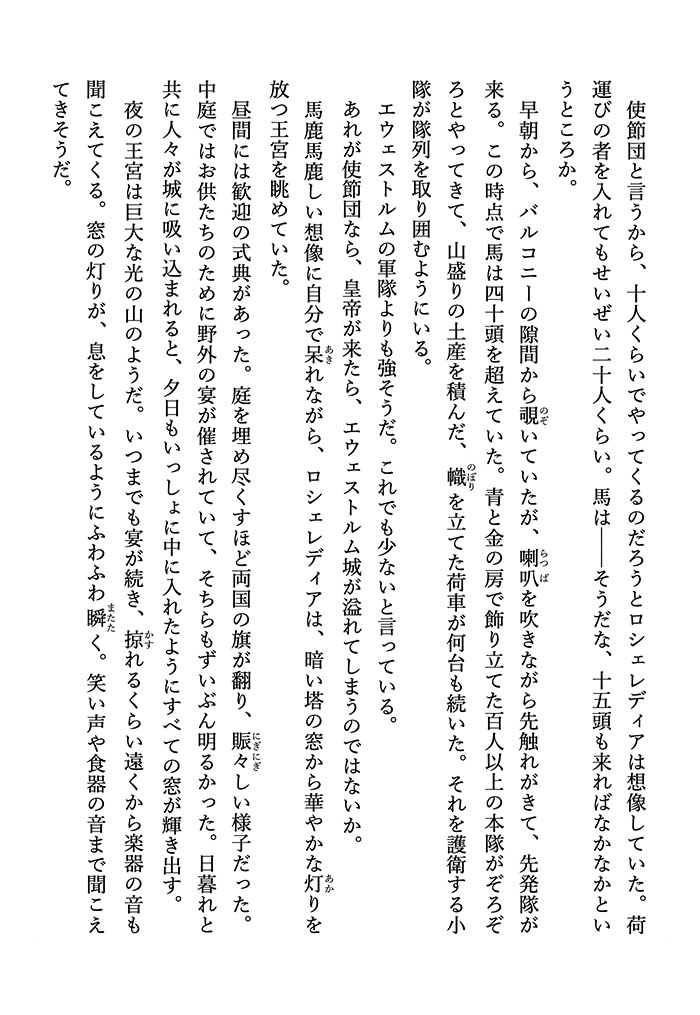 使節団と言うから、十人くらいでやってくるのだろうとロシェレディアは想像していた。荷
運びの者を入れてもせいぜい二十人くらい。馬は――そうだな、十五頭も来ればなかなかとい
うところか。
早朝から、バルコニーの隙間から覗いていたが、喇叭を吹きながら先触れがきて、先発隊が
来る。この時点で馬は四十頭を超えていた。青と金の房で飾り立てた百人以上の本隊がぞろぞ
ろとやってきて、山盛りの土産を積んだ、幟を立てた荷車が何台も続いた。それを護衛する小
隊が隊列を取り囲むようにいる。
エウェストルムの軍隊よりも強そうだ。これでも少ないと言っている。
あれが使節団なら、皇帝が来たら、エウェストルム城が溢れてしまうのではないか。
馬鹿馬鹿しい想像に自分で呆れながら、ロシェレディアは、暗い塔の窓から華やかな灯りを
放つ王宮を眺めていた。
昼間には歓迎の式典があった。庭を埋め尽くすほど両国の旗が翻り、賑々しい様子だった。
中庭ではお供たちのために野外の宴が催されていて、そちらもずいぶん明るかった。日暮れと
共に人々が城に吸い込まれると、夕日もいっしょに中に入れたようにすべての窓が輝き出す。
夜の王宮は巨大な光の山のようだ。いつまでも宴が続き、掠れるくらい遠くから楽器の音も
聞こえてくる。窓の灯りが、息をしているようにふわふわ瞬く。笑い声や食器の音まで聞こえ
てきそうだ。